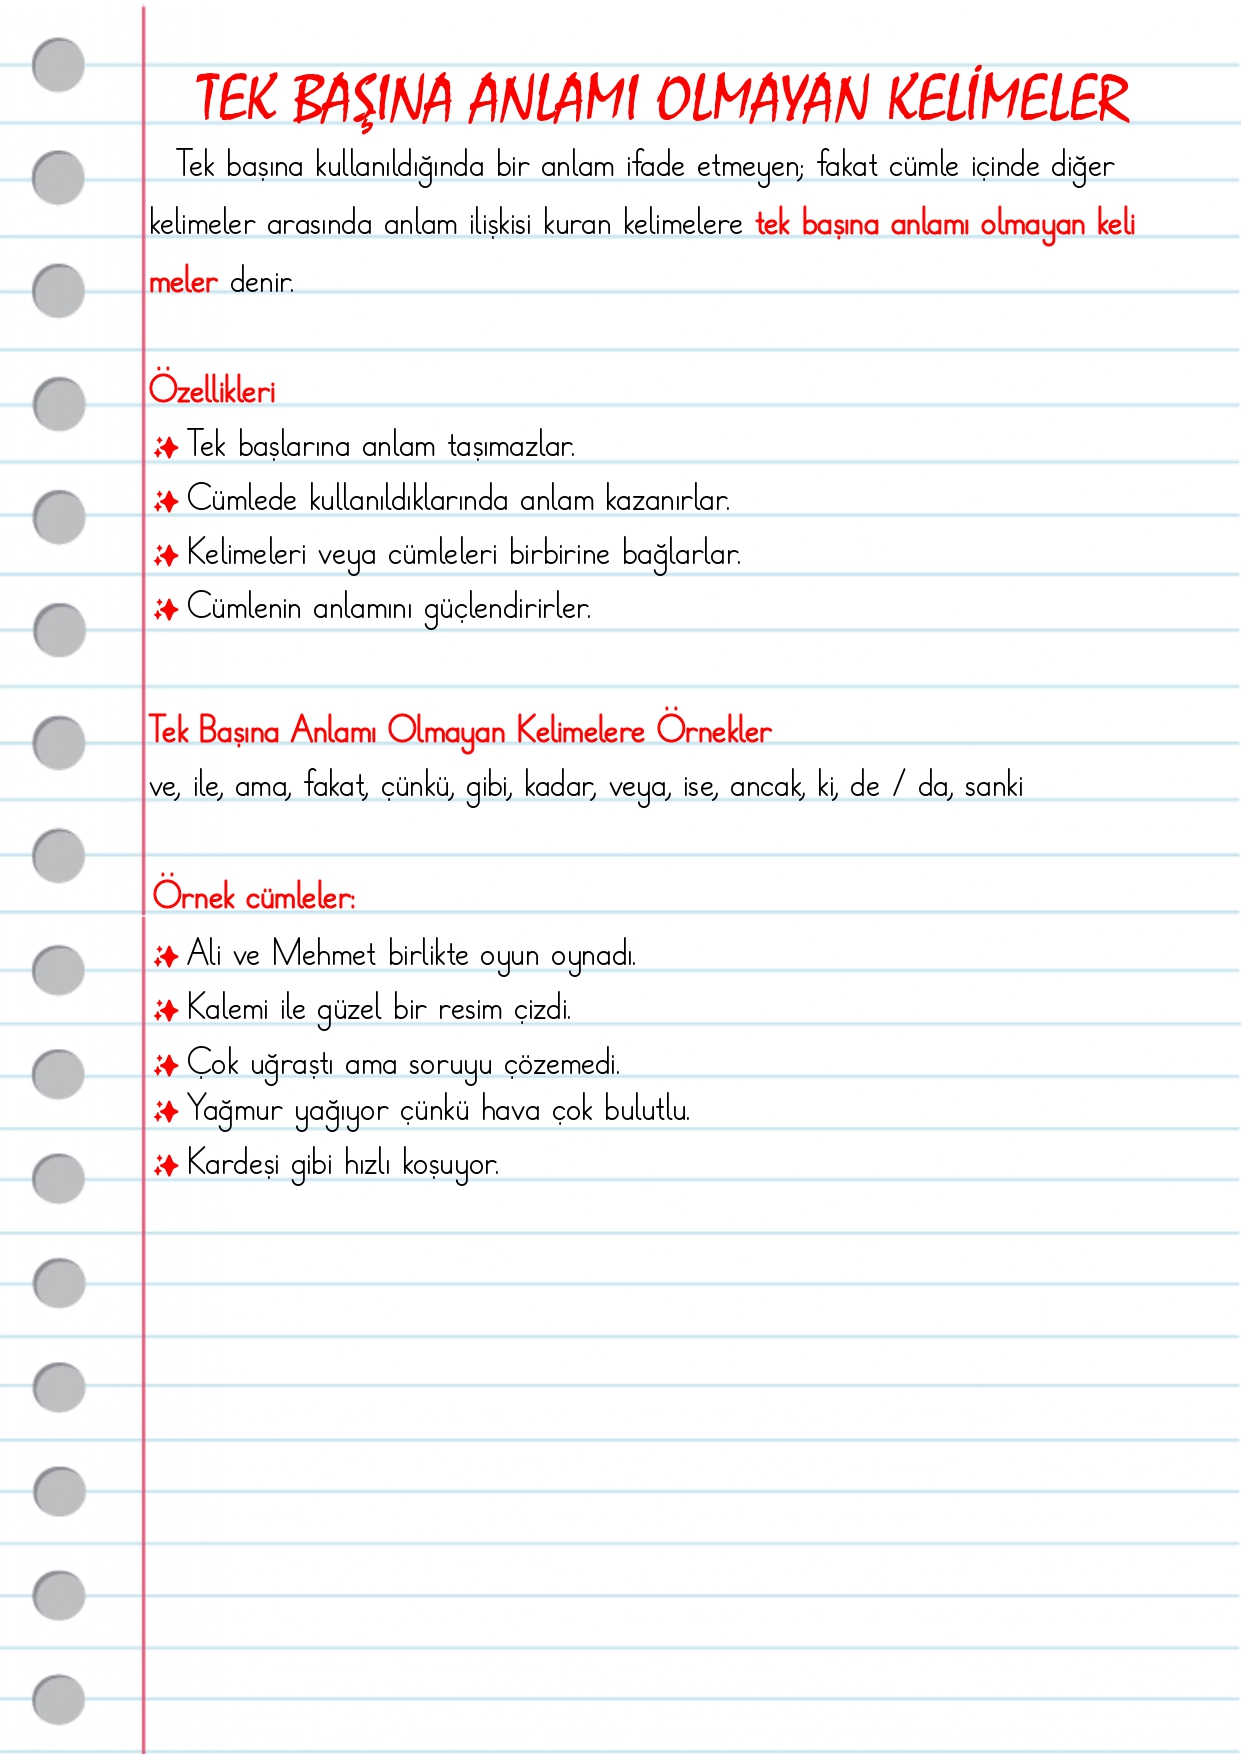 TEK BAŞINA ANLAMI OLMAYAN KELİMELER
Tek başına kullanıldığında bir anlam ifade etmeyen; fakat cümle içinde diğer
kelimeler arasında anlam ilişkisi kuran kelimelere tek başına anlamı olmayan keli
meler denir.
Özellikleri
Tek başlarına anlam taşımazlar.
Cümlede kullanıldıklarında anlam kazanırlar.
Kelimeleri veya cümleleri birbirine bağlarlar.
Cümlenin anlamını güçlendirirler.
Tek Başına Anlamı Olmayan Kelimelere Örnekler
ve, ile, ama, fakat, çünkü, gibi, kadar, veya, ise, ancak, ki, de / da, sanki
Örnek cümleler:
Ali ve Mehmet birlikte oyun oynadı.
Kalemi ile güzel bir resim çizdi.
Çok uğraştı ama soruyu çözemedi.
Yağmur yağıyor çünkü hava çok bulutlu.
Kardeşi gibi hızlı koşuyor.